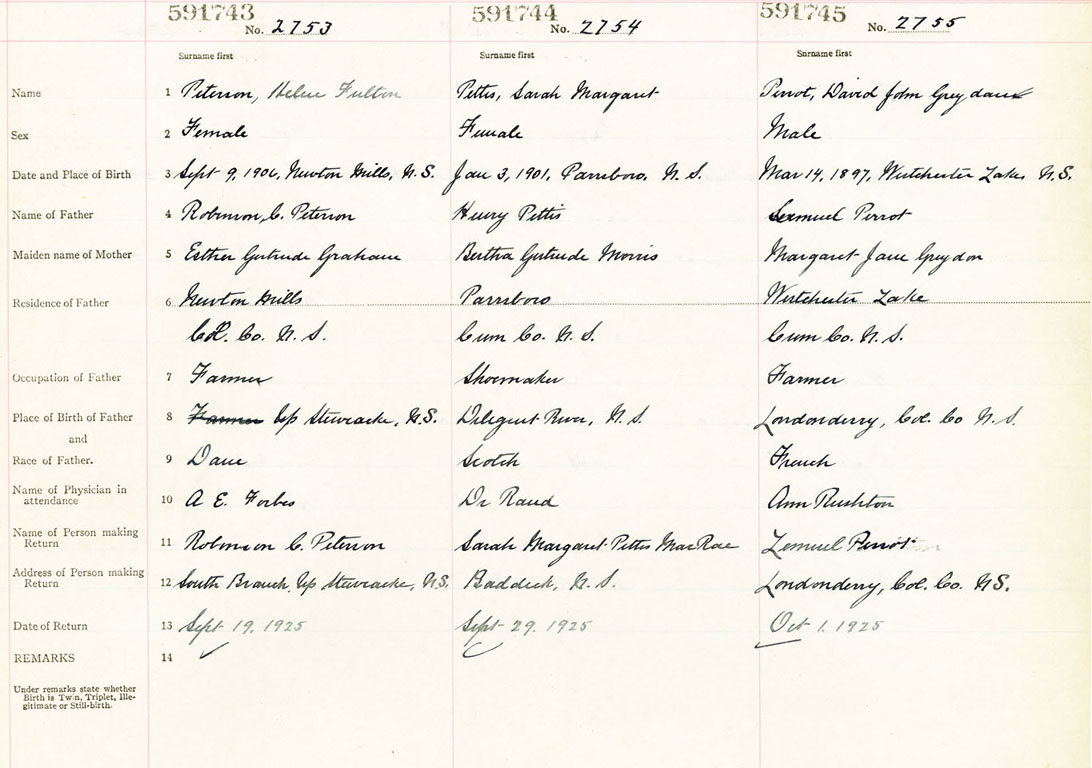 591743 591744 591745
No. 2753 No. 2754 No. 2755
Surname first Surname first Surname first
Name 1 Peterson, Helen Fulton Pettis, Sarah Margaret Perrot, David John
Sex 2 Female Female Male
Date and Place of Birth 3 Sept 9, 1906, Newton Mills, N.S. Jan 3, 1901, Parrsboro, N. S. Mar 14, 1897, Westchester Lake, N.S.
Name of Father 4 Robinson, C. Peterson Henry Pettis Lemuel Perrot
Maiden name of Mother 5 Esther Gertrude Graham Bertha Gertrude Morris Margaret Jane Greydon
Residence of Father 6 Newton Mills Parrsboro Westchester Lake
Col. Co. N. S. Cum Co. N. S. Cum Co. N. S.
Occupation of Father 7 Farmer Shoemaker Farmer
Place of Birth of Father 8 Farmer Up Stewiacke, N.S. Diligent River, N. S. Londonderry, Col. Co N. S.
and
Race of Father. 9 Dane Scotch French
Name of Physician in
attendance 10 A E. Forbes Dr Rand Ann Rushton
Name of Person making
Return 11 Robinson C. Peterson Sarah Margaret Pettis MacRae Lemuel Perrot
Address of Person making
Return 12 South Branch, Up Stewiacke, N.S. Baddeck, N. S. Londonderry, Col. Co. N.S.
Date of Return 13 Sept 19, 1925 Sept 29. 1925 Oct 1. 1925
REMARKS 14
Under remarks state whether
Birth is Twin, Triplet, Ille-
gitimate or Still-birth.